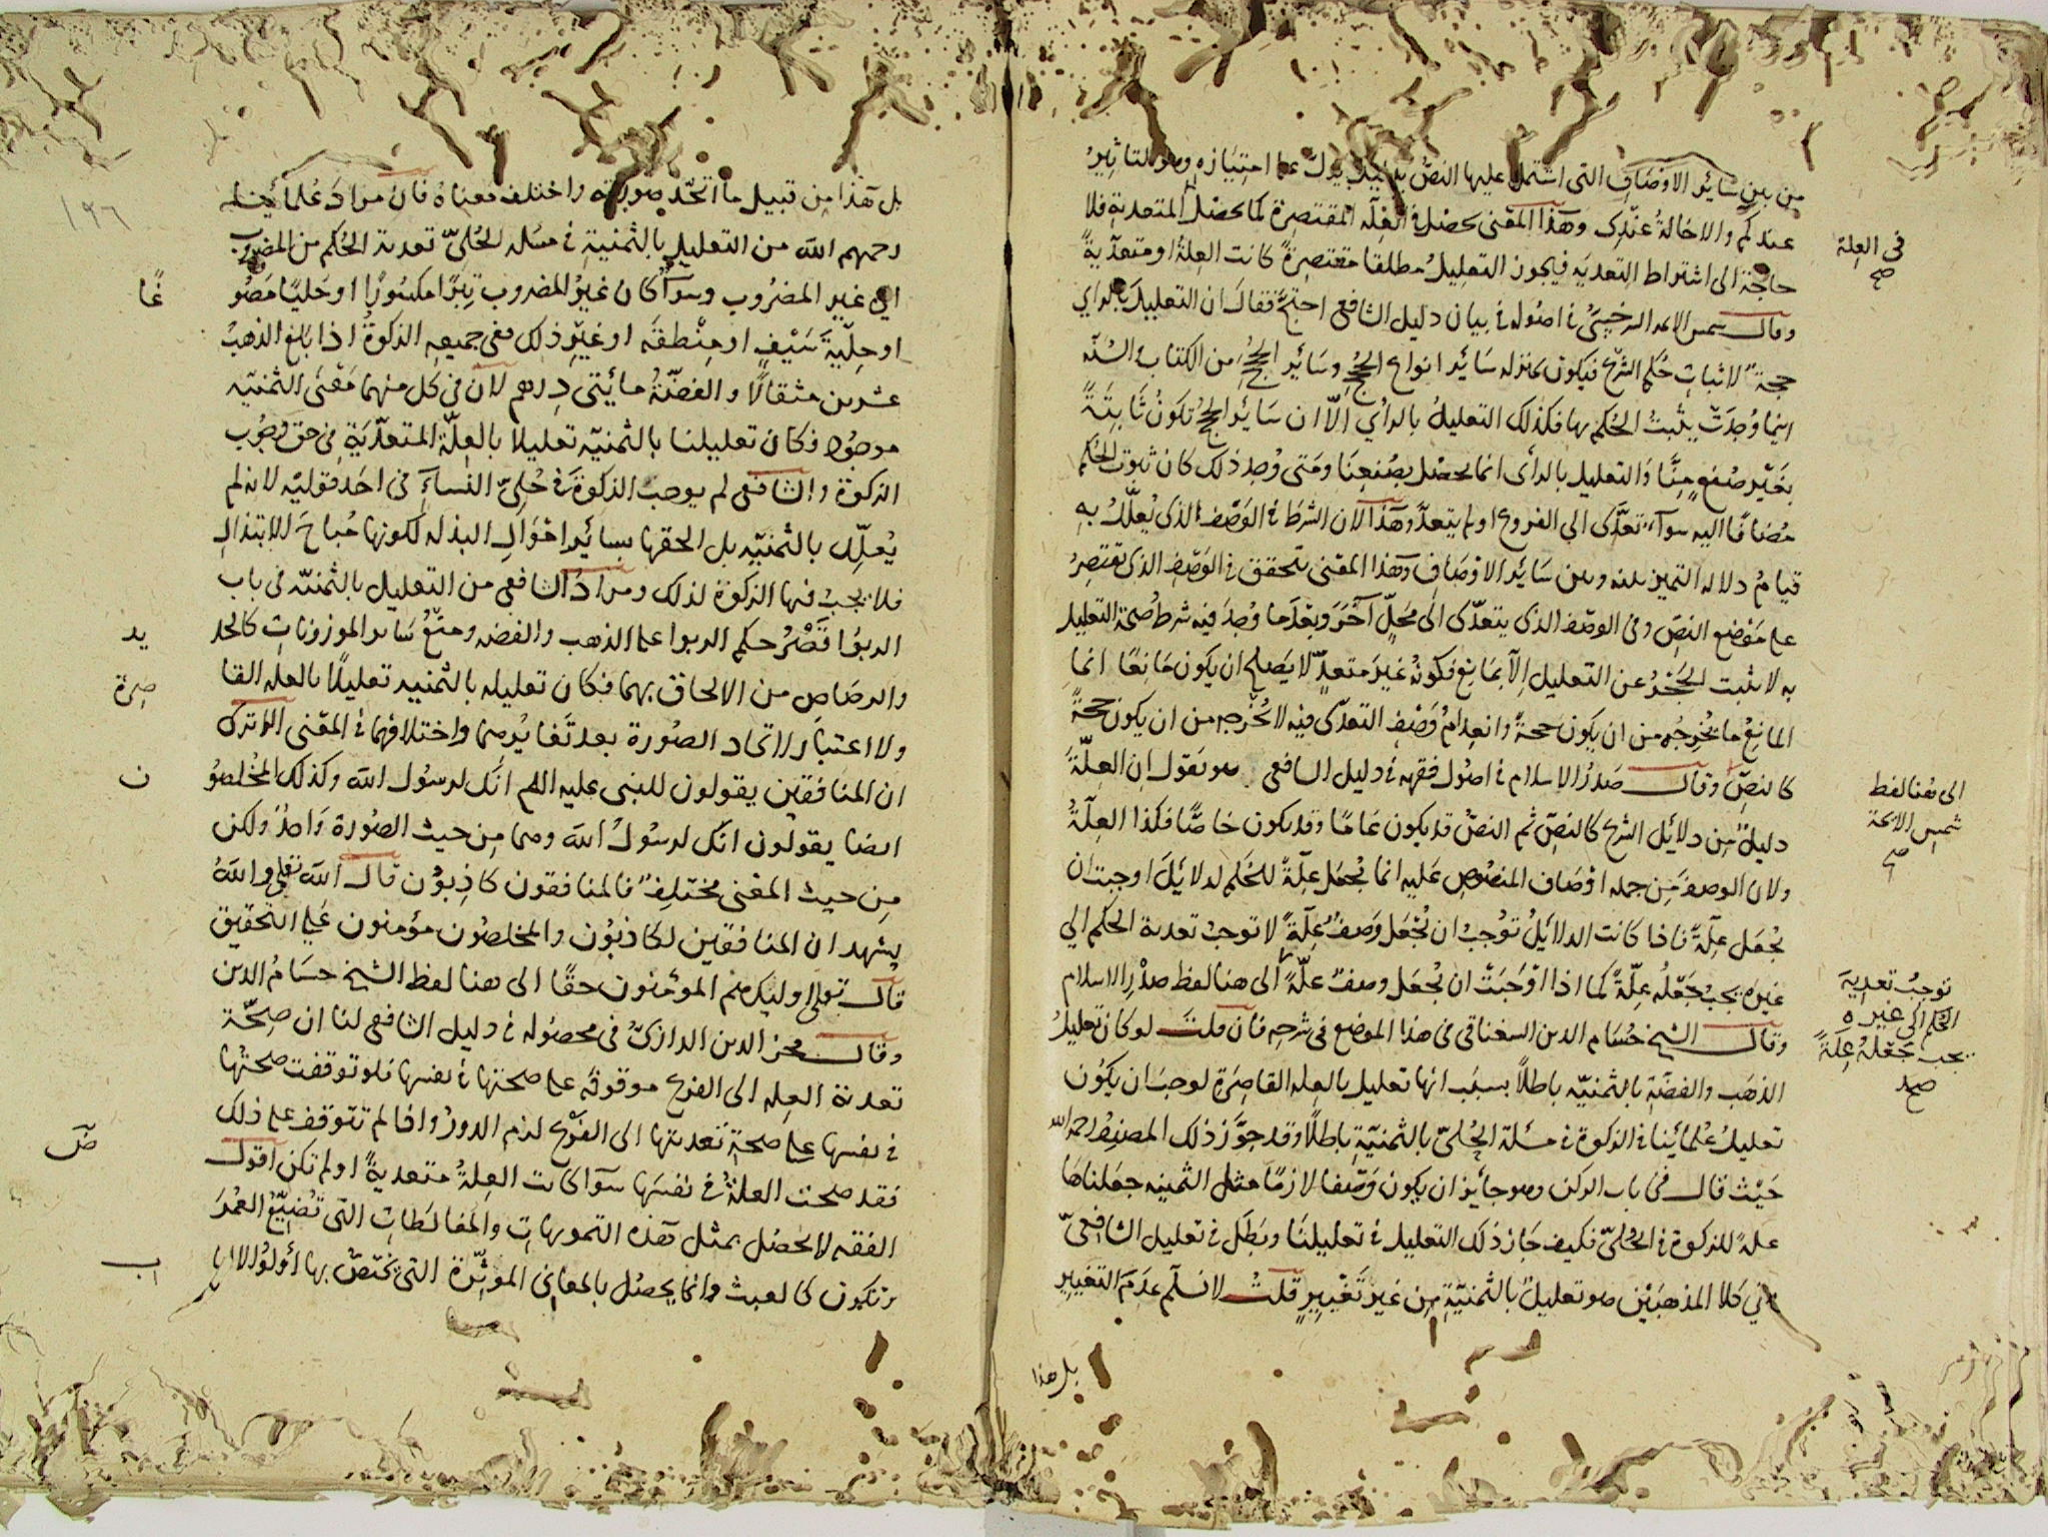 من بين سائر الاوصاف التى اشتمل عليها النصّ بدليل يدلّ على امتيازه وهو التاثير
عندكم والاخالة عندك وهذا المعنى يحصل فى العلّه المقتصرة كما يحصل فى المتعدية فلا
حاجة الى اشتراط التعديه فيجوز التعليل مطلقا مقتصرةً كانت العلة او متعديةً
وقال شمس الائمه السرخسىّ فى اصوله فى بيان دليل الشافعى احتجّ فقال ان التعليل بالراي
حجة لاثبات حُكم الشرع فيكون بمنزله سائر انواع الحجج وسائر الحجج من الكتاب والسنّه
اينما وُجدَت يثبتُ الحُكم بها فكذلك التعليلُ بالرأي الّا ان سائر الحجج تكونُ ثابتةً
بغير صُنعٍ منّا والتعليل بالرأى انما يحصل بصُنعِنَا ومَتى وُجد ذلك كان ثبوت الحُكم
مُضافًا اليه سوآء تعدّى الى الفروع او لم يتعدَّ وهذا لان الشرط فى الوَصف الذى يُعلّل به
قيامُ دلاله التميز بينه وبين سائر الاوصاف وهذا المعنى يتحقق فى الوَصف الذى تقتصِرُ
على مَوضع النصّ وفى الوصف الذى يتعدّى الى محَلٍّ آخَرَ وبعْدَما وُجدَ فيه شرط صُحة التعليل
به لا يثبت الحَجْرُ عن التعليل الّا بمانع فكونهُ غيرَ متعدٍّ لا يَصلح ان يكون مَانعًا انما
المانعُ ما يُخرِجُه من ان يكون حجةً وانعِدامُ وَصْفِ التعدّى فيه لا يُخرِجه من ان يكون حجةً
كالنصّ وقال صَدرُ الاسلام فى اصُول فقهه فى دليل الشافعى هو يَقول ان العِلّةَ
دليلٌ مِن دلائل الشرع كالنصّ ثم النصّ قد يكون عَامًا وقد يكون خاصًّا فكذا العِلّةُ
ولان الوصفَ مِن جمله اوصَاف المنصُوصِ عَليه انما يُجعَل علّةً للحُكم لدلائلَ اوجبت ان
يُجعَل علّةً فاذا كانت الدلائلُ تُوجبُ ان يُجعَل وَصفٌ علّةً لا توجبُ تعدية الحكم الي
غيره يجبُ جَعْلُه عِلّةً كما اذا اَوْجَبَتْ ان يُجعَل وصفٌ علّةً الى هنا لفظ صدْرِ الاسلام
وقال الشيخ حُسَام الدين السغناقى فى هذا الموضع فى شرحِه فان قلتَ لو كان تعليلُ
الذهَب والفضّة بالثمنيّه باطلًا بسبَب انها تعليل بالعله القاصِرَة لوجبَ ان يكوُن
تعليلُ عُلمائنا فى الزكوة فى مسئلة الحُلىّ بالثمنيّة باطلًا وقد جوَّز ذلك المصنفُ رحمه الله
حَيْث قال فى باب الركن وهو جائز ان يكون وَصْفا لازمًا مثل الثمنيه جعلناها
علةً للزكوة فى الحُلىّ فكيف جَاز ذلك التعليل فى تعليلنَا وبَطَل فى تعليل الشافعىّ
فى كلا المذهبَيْن هو تعليلٌ بالثمنيّة مِن غير تَغْييرٍ قلتُ لا نسلّم عَدَمَ التغييرِ
بل هذا
فى العلة
صح
الى هُنا لفظ
شمس الائمة
صح
توجبُ تعديةَ
الحكم الى غيره
يجب جَعْلهُ عِلّةً
صح
بل هٓذا مِن قبيل ما اتّحد صورته واختلف معناه فان مرادَ عُلمائنا
رحمهم الله من التعليل بالثمنيةِ فى مسَله الحُلىّ تعدية الحُكم من المضروب
الى غير المضرُوب وسوآءٌ كان غيرُ المضروب تِبرًا مكسُورًا او حَليًا مَصُو
غًا
او حِلْيَةَ سَيْفٍ او مِنْطقَه او غيرِ ذلك ففى جميعه الزكوةُ اذا بلغ الذهبُ
عشرين مثقالًا والفضّةُ مائتى دِرهم لان فى كل منهما مَعْنَى الثمنيّه
موجُود فكان تعليلنا بالثمنيّه تعليلا بالعِلّة المتعدّيَةِ فى حق وجُوب
الزكوة والشافعى لم يوجب الزكوةَ فى حُلىّ النساءِ فى احَد قوليْه لانه لم
يُعلّل بالثمنيّهِ بل الحقها بسائر اموَال البذله لكونها مُباحَ للابتذال
فلا يجبُ فيها الزكوة لذلك ومرادُ الشافعى من التعليل بالثمنيّه فى باب
الربوا قَصْرُ حكم الربوا على الذهب والفضه ومنعُ سَائر الموزونات كالحد
يد
والرصَاص من الالحاق بهما فكان تعليله بالثمنيه تعليلًا بالعله القا
صرة
ولا اعتبَار لاتحاد الصُورة بعد تَغايُرهما واختلافهما فى المعْنى الا ترى
ان المنافقين يقولون للنبى عليه السلم انّك لرسُول الله وكذلك المُخلصُو
ن
ايضا يقولون انّك لرسُولُ الله وهما مِن حيث الصُورة وَاحدٌ ولكن
مِن حيث المعْنى مختلِفٌ فالمنافقون كاذِبوُن قال الله تعلى واللهُ
يشهد ان المنافقين لكاذبوُن والمخلصُون مؤمنون عَلي التحقيق
قال تعلى اوليك هم المومنُون حقًا الى هنا لفظ الشيخ حسَامُ الدين
وقال فخر الدين الرازىّ فى محصُوله فى دليل الشافعى لنا ان صِحّة
تعدية العِله الى الفرع موقوفه على صحتها فى نفسها فلو توقفت صحتُها
فى نفسها على صحةِ تَعديتها الى الفَرْع لزم الدورُ واذا لم تتوقف على ذلك
فقد صحت العلةُ فى نفسَها سوآ كانت العِلةُ متعديةً او لم تكن اقول
الفقه لا يحصُل بمثل هٓذه التمويهاتِ والمغالَطاتِ التى تُضيّعُ العُمُرَ
وتكون كالعبث وانما يحصُل بالمعاني الموثّرة التى يختصّ بها اُولُوا الالبا
ب
١٩٦